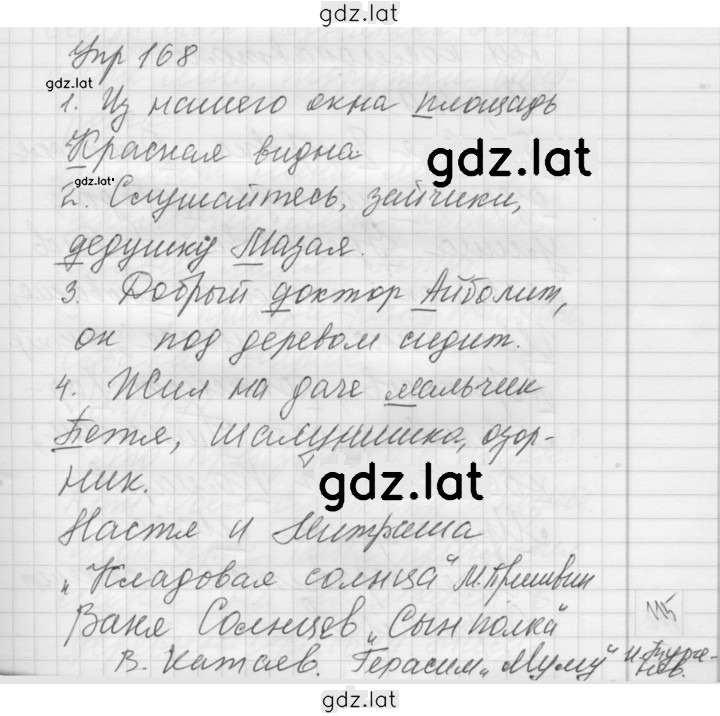 gdz.lat
Упр 168
gdz.lat
1. Из нашего окна площадь
Красная видна.
gdz.lat
gdz.lat
2. Слушайтесь, зайчики,
дедушку Мазая.
3. Добрый доктор Айболит,
он под деревом сидит.
4. Жил на даче мальчик
Петя, шалунишка, озор-
ник.
gdz.lat
Настя и Митраша
"Кладовая солнца" М. Пришвин
115
Ваня Солнцев "Сын полка"
В. Катаев. Герасим "Муму" И. Турге-
нев.
gdz.lat